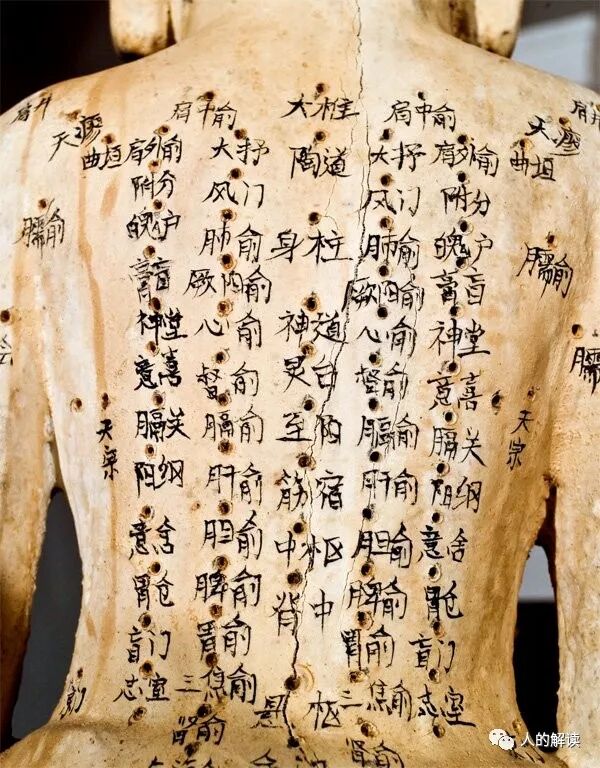 肩中俞 大柱 肩中俞
天髎 天髎
曲垣 肩外俞 大抒 陶道 大抒 肩外俞 曲垣
附分 风门 风门 附分
魄户 肺俞 身柱 肺俞 魄户
臑俞 臑俞
膏肓 厥阴俞 厥阴俞 膏肓
神堂 心俞 神道 心俞 神堂
意喜 督俞 灵台 督俞 意喜
膈关 膈俞 至阳 膈俞 膈关
天宗 天宗
阳纲 肝俞 筋宿 肝俞 阳纲
意舍 胆俞 中枢 胆俞 意舍
胃仓 脾俞 背中 脾俞 胃仓
肓门 胃俞 胃俞 肓门
志室 三焦俞 悬枢 三焦俞 志室
肾俞 肾俞
人的解读